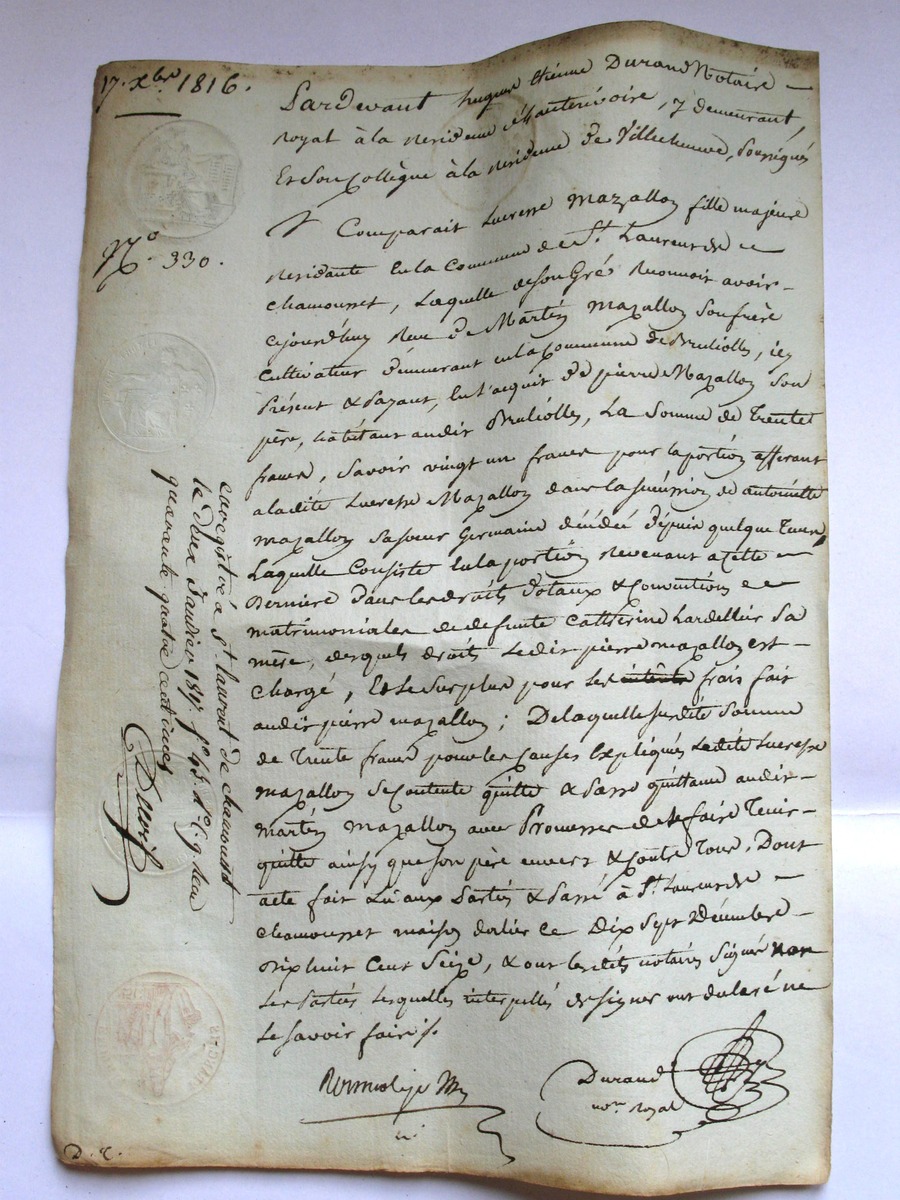 17. xbre 1816.
No. 330.
Pardevant hugues Etienne Durand Notaire
royal à la residence d'hauterivoire, y demeurant,
Et Son Collègue à la residence de Villecheneve, Soussignés
Comparait Lucresse Mazallon fille majeure
residante En la Commune de St. Laurent de
chamousset, Laquelle de Son Gré Reconnoit avoir
cejourd'huy Reçu de Martin Mazallon Son frère
Cultivateur demeurant en la Commune de Brulliolles, icy
Présent & Payant, En l'acquit de pierre Mazallon Son
père, habitant audit Brulliolles, La Somme de Trente
francs, Savoir vingt un francs pour la portion afferant
a ladite Lucresse Mazallon dans la Succession de antoinette
Mazallon Sa Soeur Germaine décédée depuis quelque Temps
Laquelle Consiste En la portion Revenant a Cette
Derniere dans les droits dotaux & Conventions
matrimoniales de defunte Catherine Lardellier Sa
mère, desquels droits Ledit pierre mazallon est
Chargé, Et le Surplus pour les frais fait
audit pierre mazallon; De laquelle Susdite Somme
de Trente francs pour les Causes Expliquées Ladite Lucresse
Mazallon Se Contente quitte & Passe quittance audit
Martin Mazallon avec Promesse de le faire Tenir
quitte ainsy que Son père envers & Contre Tous. Dont
acte fait Lu aux Parties & Passé à St. Laurent de
Chamousset maison ce Dix Sept Décembre
Dix huit Cent Seize, & ont lesdits notaires Signé non
Les Parties Lesquelles interpellés de Signer ont declaré ne
Le Savoir faire /.
Durand
not.re Royal
enregistré à St. laurent de chamousset
le deux Janvier 1817 fo. 43 Ro. C. 9 Reçu
quarante quatre centimes
D. C.